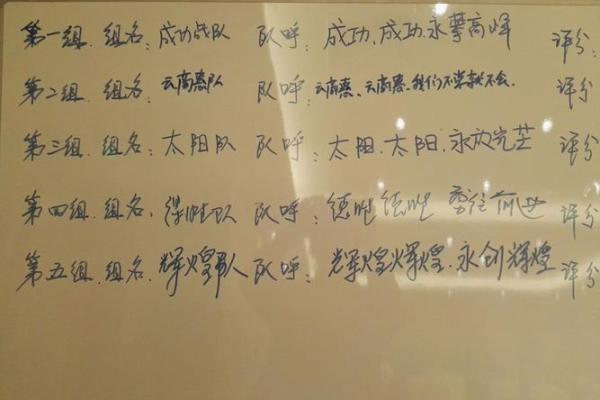 第一组.组名:成功战队 队呼:成功、成功、永攀高峰 评分:
第二组.组名:云商惠队 队呼:云商惠、云商惠、我们不来就不会. 评分
第三组.组名:太阳队 队呼:太阳、太阳、永放光芒 评分
第四组.组名: 队呼:德胜德胜 勇往前进 评分
第五组.组名.辉煌队 队呼:辉煌辉煌.永创辉煌 评分